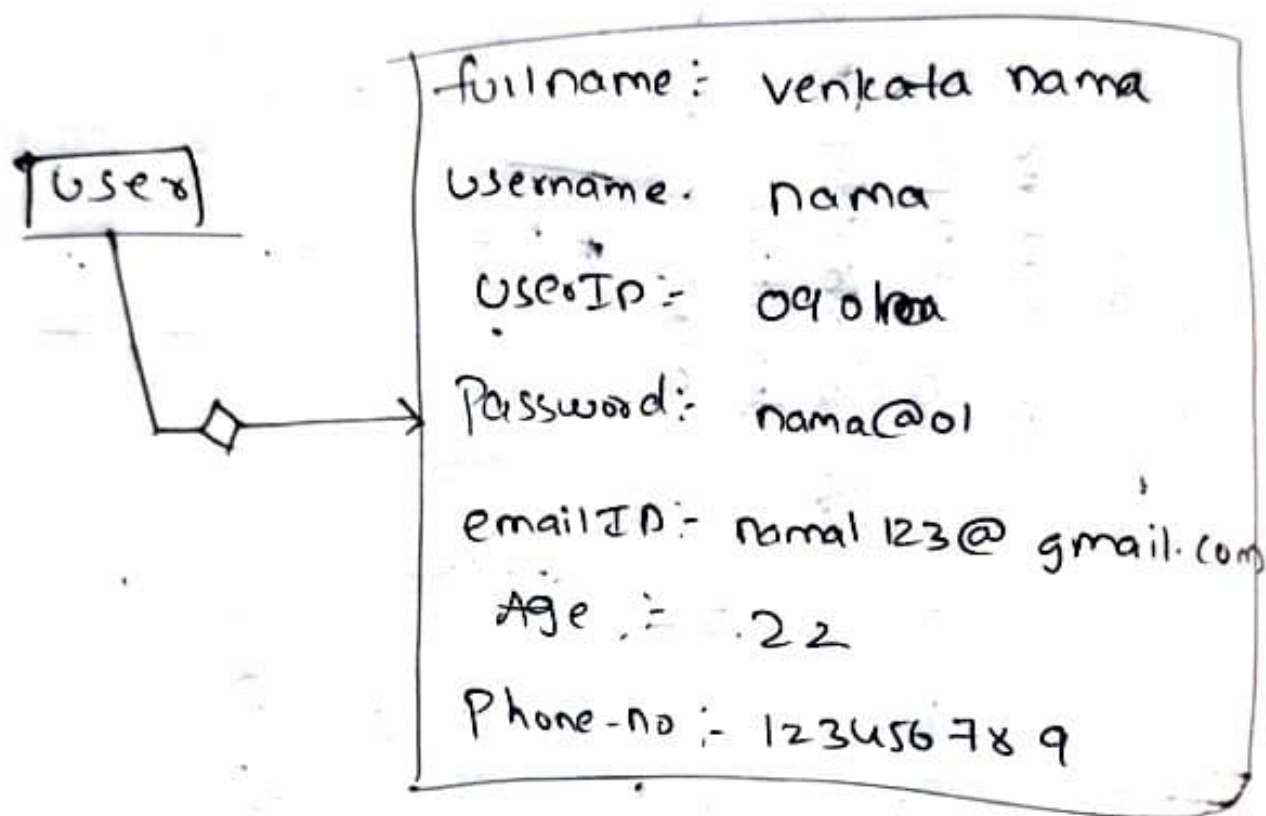 User
fullname:- venkata nama
Username. nama
UserID:-
Password:- nama@01
emailID:- nama1123@gmail.com
Age :- 22
Phone-no :- 123456789